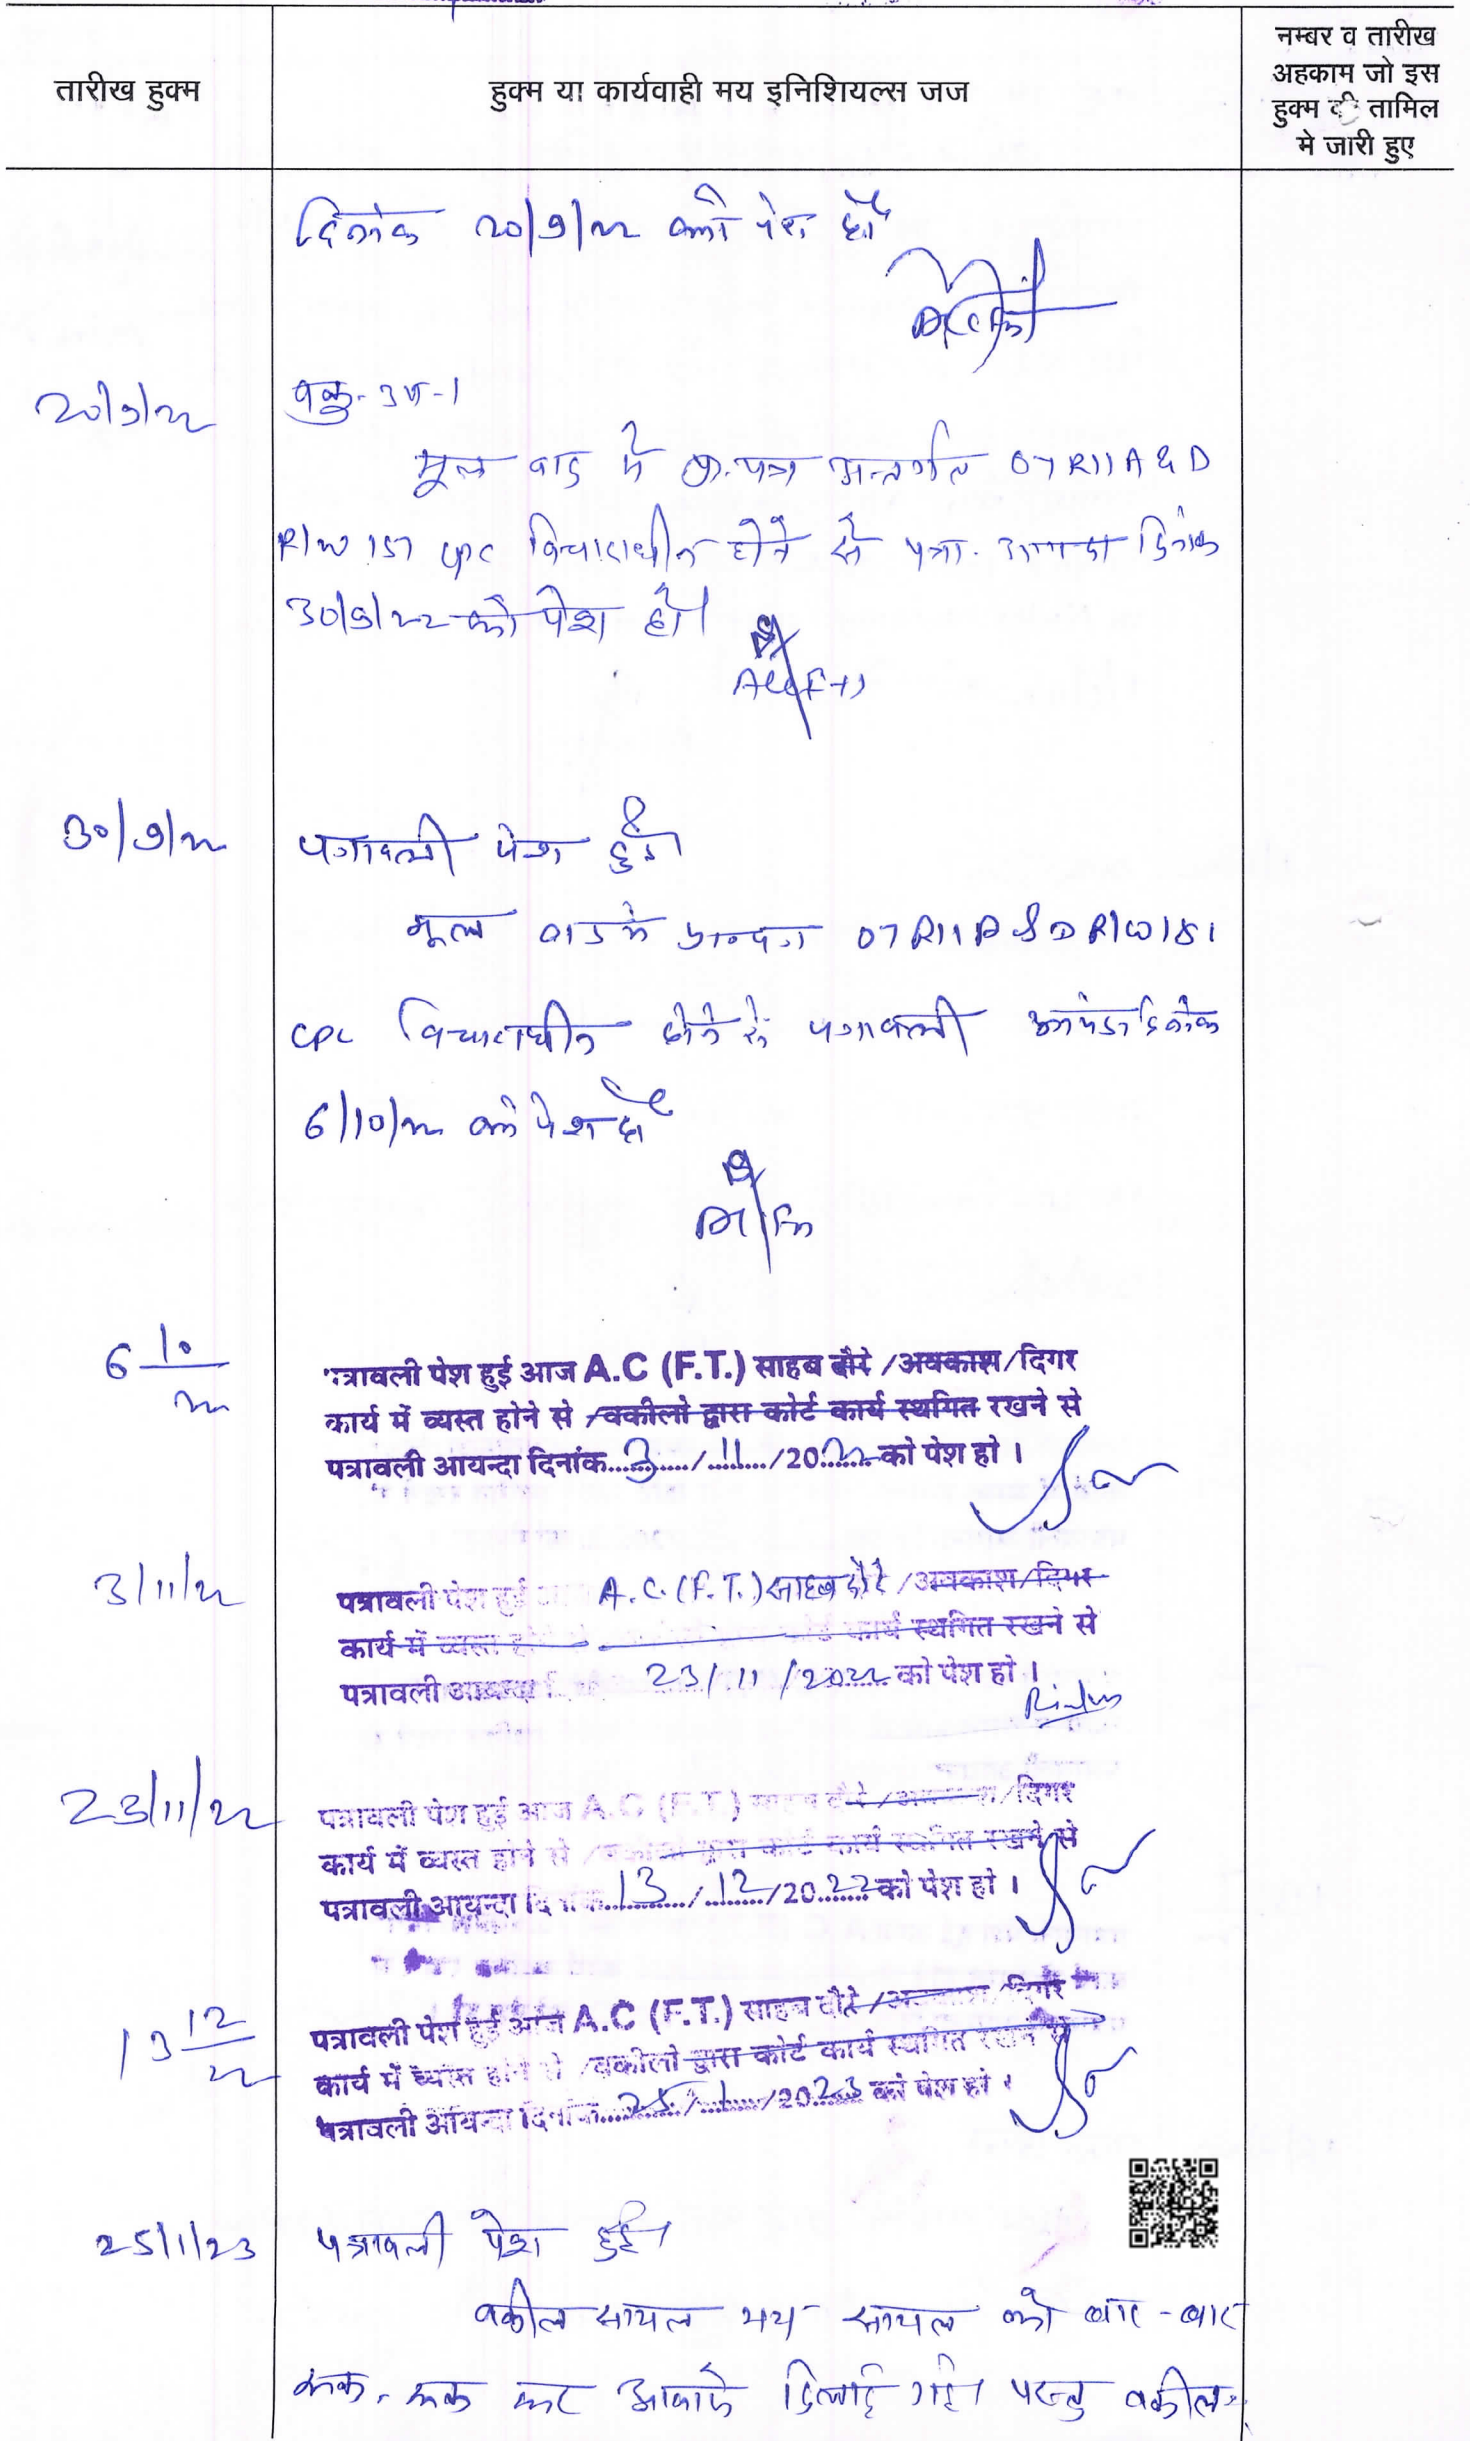 तारीख हुक्म
हुक्म या कार्यवाही मय इनिशियल्स जज
नम्बर व तारीख
अहकाम जो इस
हुक्म की तामिल
मे जारी हुए
दिनांक 20/9/22 को पेश हो
20/9/22
मूल वाद में प्रा.पत्र अन्तर्गत 07 R11 A & D
R/W 151 CPC विचाराधीन होने से पत्रा. आयन्दा दिनांक
30/9/22 को पेश हो।
30/9/22
पत्रावली पेश हुई।
मूल वाद में 07 R11 A & D R/W 151
CPC विचाराधीन होने से पत्रावली आयंदा दिनांक
6/10/22 को पेश हो
6/10/22
पत्रावली पेश हुई आज A.C (F.T.) साहब दौरे /अवकाश/दिगर
कार्य में व्यस्त होने से /वकीलो द्वारा कोर्ट कार्य स्थगित रखने से
पत्रावली आयन्दा दिनांक 3/11/2022 को पेश हो ।
3/11/22
पत्रावली पेश हुई आज A.C. (F.T.) साहब दौरे /अवकाश/दिगर
कार्य में व्यस्त कोर्ट कार्य स्थगित रखने से
पत्रावली आयन्दा 23/11/2022 को पेश हो ।
23/11/22
पत्रावली पेश हुई आज A.C (F.T.) साहब दौरे /अवकाश/दिगर
कार्य में व्यस्त होने से /वकीलो द्वारा कोर्ट कार्य स्थगित रखने से
पत्रावली आयन्दा दिनांक 13/12/2022 को पेश हो ।
13/12/22
पत्रावली पेश हुई आज A.C (F.T.) साहब दौरे /अवकाश/दिगर
कार्य में व्यस्त होने से /वकीलो द्वारा कोर्ट कार्य स्थगित रखने से
पत्रावली आयन्दा दिनांक 25/1/2023 को पेश हो ।
25/1/23
पत्रावली पेश हुई।
वकील सायल मय सायल को बार-बार
रूक-रूक कर आवाजे दिलाई गई। परन्तु वकील